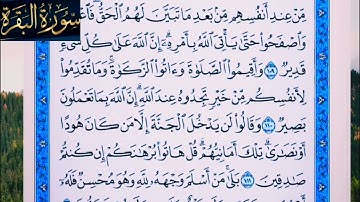 سُورَةُ الْبَقَرَةِ
مِّنْ عِندِ أَنفُسِهِم مِّنۢ بَعْدِ مَا تَبَيَّنَ لَهُمُ الْحَقُّ
وَاصْفَحُوا حَتَّىٰ يَأْتِيَ اللَّهُ بِأَمْرِهِۦٓ إِنَّ اللَّهَ عَلَىٰ كُلِّ شَىْءٍ
قَدِيرٌ ١٠٩ وَأَقِيمُوا الصَّلَوٰةَ وَءَاتُوا الزَّكَوٰةَ وَمَا تُقَدِّمُوا
لِأَنفُسِكُم مِّنْ خَيْرٍ تَجِدُوهُ عِندَ اللَّهِ إِنَّ اللَّهَ بِمَا تَعْمَلُونَ
بَصِيرٌ ١١٠ وَقَالُوا لَن يَدْخُلَ الْجَنَّةَ إِلَّا مَن كَانَ هُودًا
أَوْ نَصَٰرَىٰ تِلْكَ أَمَانِيُّهُمْ قُلْ هَاتُوا بُرْهَٰنَكُمْ إِن كُنتُمْ
صَٰدِقِينَ ١١١ بَلَىٰ مَنْ أَسْلَمَ وَجْهَهُۥ لِلَّهِ وَهُوَ مُحْسِنٌ فَلَهُۥٓ